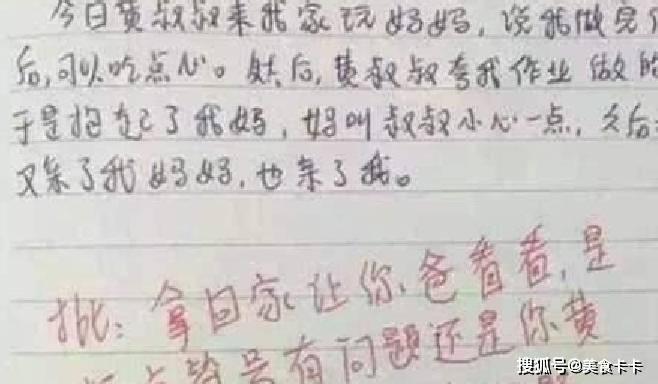 今日黄叔叔来我家玩妈妈,说我做完
后,可以吃点心。然后,黄叔叔夸我作业做的
于是抱起了我妈,妈叫叔叔小心一点,之后
又亲了我妈妈,也亲了我。
批:拿回家让你爸看看,是
标点符号有问题还是你黄
搜狐号@美食卡卡